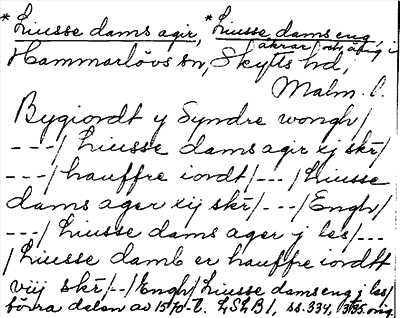 *Liusse dams agir, *Liusse dams eng,
(åkrar) och äng i
Hammarlövs sn, Skytts hd,
Malm. l.
Bygiordt y Syndre wongh/
---/ Liusse dams agir xj skr/
---/ hauffre iordt/---/ Liusse
dams ager xij skr/---/ Engh/
---/ Liusse dams ager j les/---
/ Liusse damb er hauffre iordtt
viij skr/--/ Engh/ Liusse dams eng j les/
förra delen av 1570-t. LSLB1, ss. 334, 335. orig.